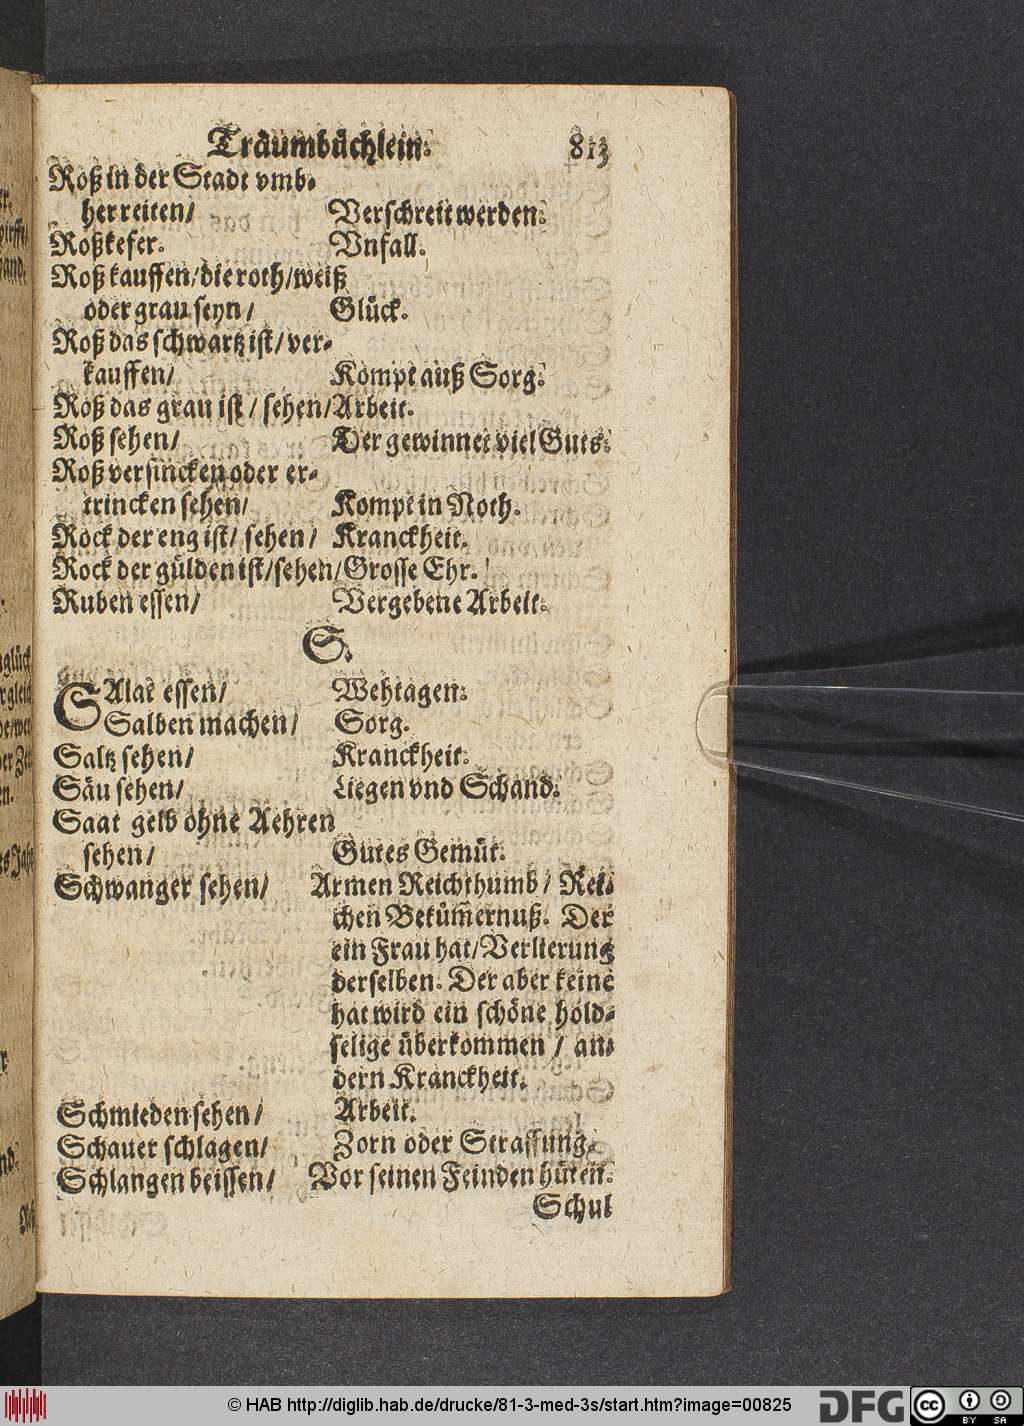 Traumbüchlein. 813
Roß in der Stadt vmb-
herreiten/ Verschreit werden.
Roßkefer. Vnfall.
Roß kauffen/die roth/weiß
oder grau seyn/ Glück.
Roß das schwartz ist/ver-
kauffen/ Kompt auß Sorg.
Roß das grau ist/sehen/Arbeit.
Roß sehen/ Der gewinnet viel Guts.
Roß versincken oder er-
trincken sehen/ Kompt in Noth.
Rock der eng ist/sehen/ Kranckheit.
Rock der gülden ist/sehen/Grosse Ehr.
Ruben essen/ Vergebene Arbeit.
S.
SAlat essen/ Wehtagen.
Salben machen/ Sorg.
Saltz sehen/ Kranckheit.
Säu sehen/ Liegen vnd Schand.
Saat gelb ohne Aehren
sehen/ Gutes Gemüt.
Schwanger sehen/ Armen Reichthumb/ Rei-
chen Bekum̃ernuß. Der
ein Frau hat/Verlierung
derselben. Der aber keine
hat wird ein schöne hold-
selige überkommen/ an-
dern Kranckheit.
Schmieden sehen/ Arbeit.
Schauer schlagen/ Zorn oder Straffung.
Schlangen beissen/ Vor seinen Feinden hüten.
Schul
© HAB http://diglib.hab.de/drucke/81-3-med-3s/start.htm?image=00825
DFG
cc
BY SA